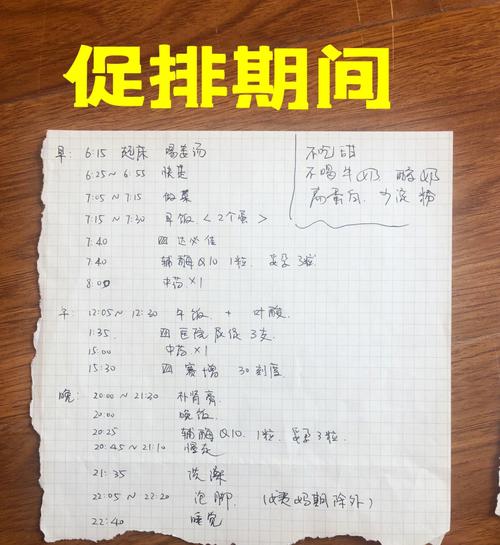 促排期间
早: 6:15 起床 喝姜汤
6:25~6:55 快走
7:05~7:15 做菜
7:15~7:30 早饭<2个蛋>
7:40 四 达必佳
7:40 辅酶Q10 1粒、 3粒.
8:00 中药×1
不吃甜
不喝牛奶 酸奶
高蛋白、少淀粉
午: 12:05~12:30 午饭 + 叶酸
1:35 四 医院尿促3支.
15:00 中药×1
15:30 四 赛增 30刻度
晚: 20:00~21:30 补肾膏
20:00 晚饭.
20:25 辅酶Q10、1粒、 3粒.
20:45~21:10 慢走
21:35 洗澡
22:05~22:20 泡脚. (姨妈期除外)
22:40 睡觉